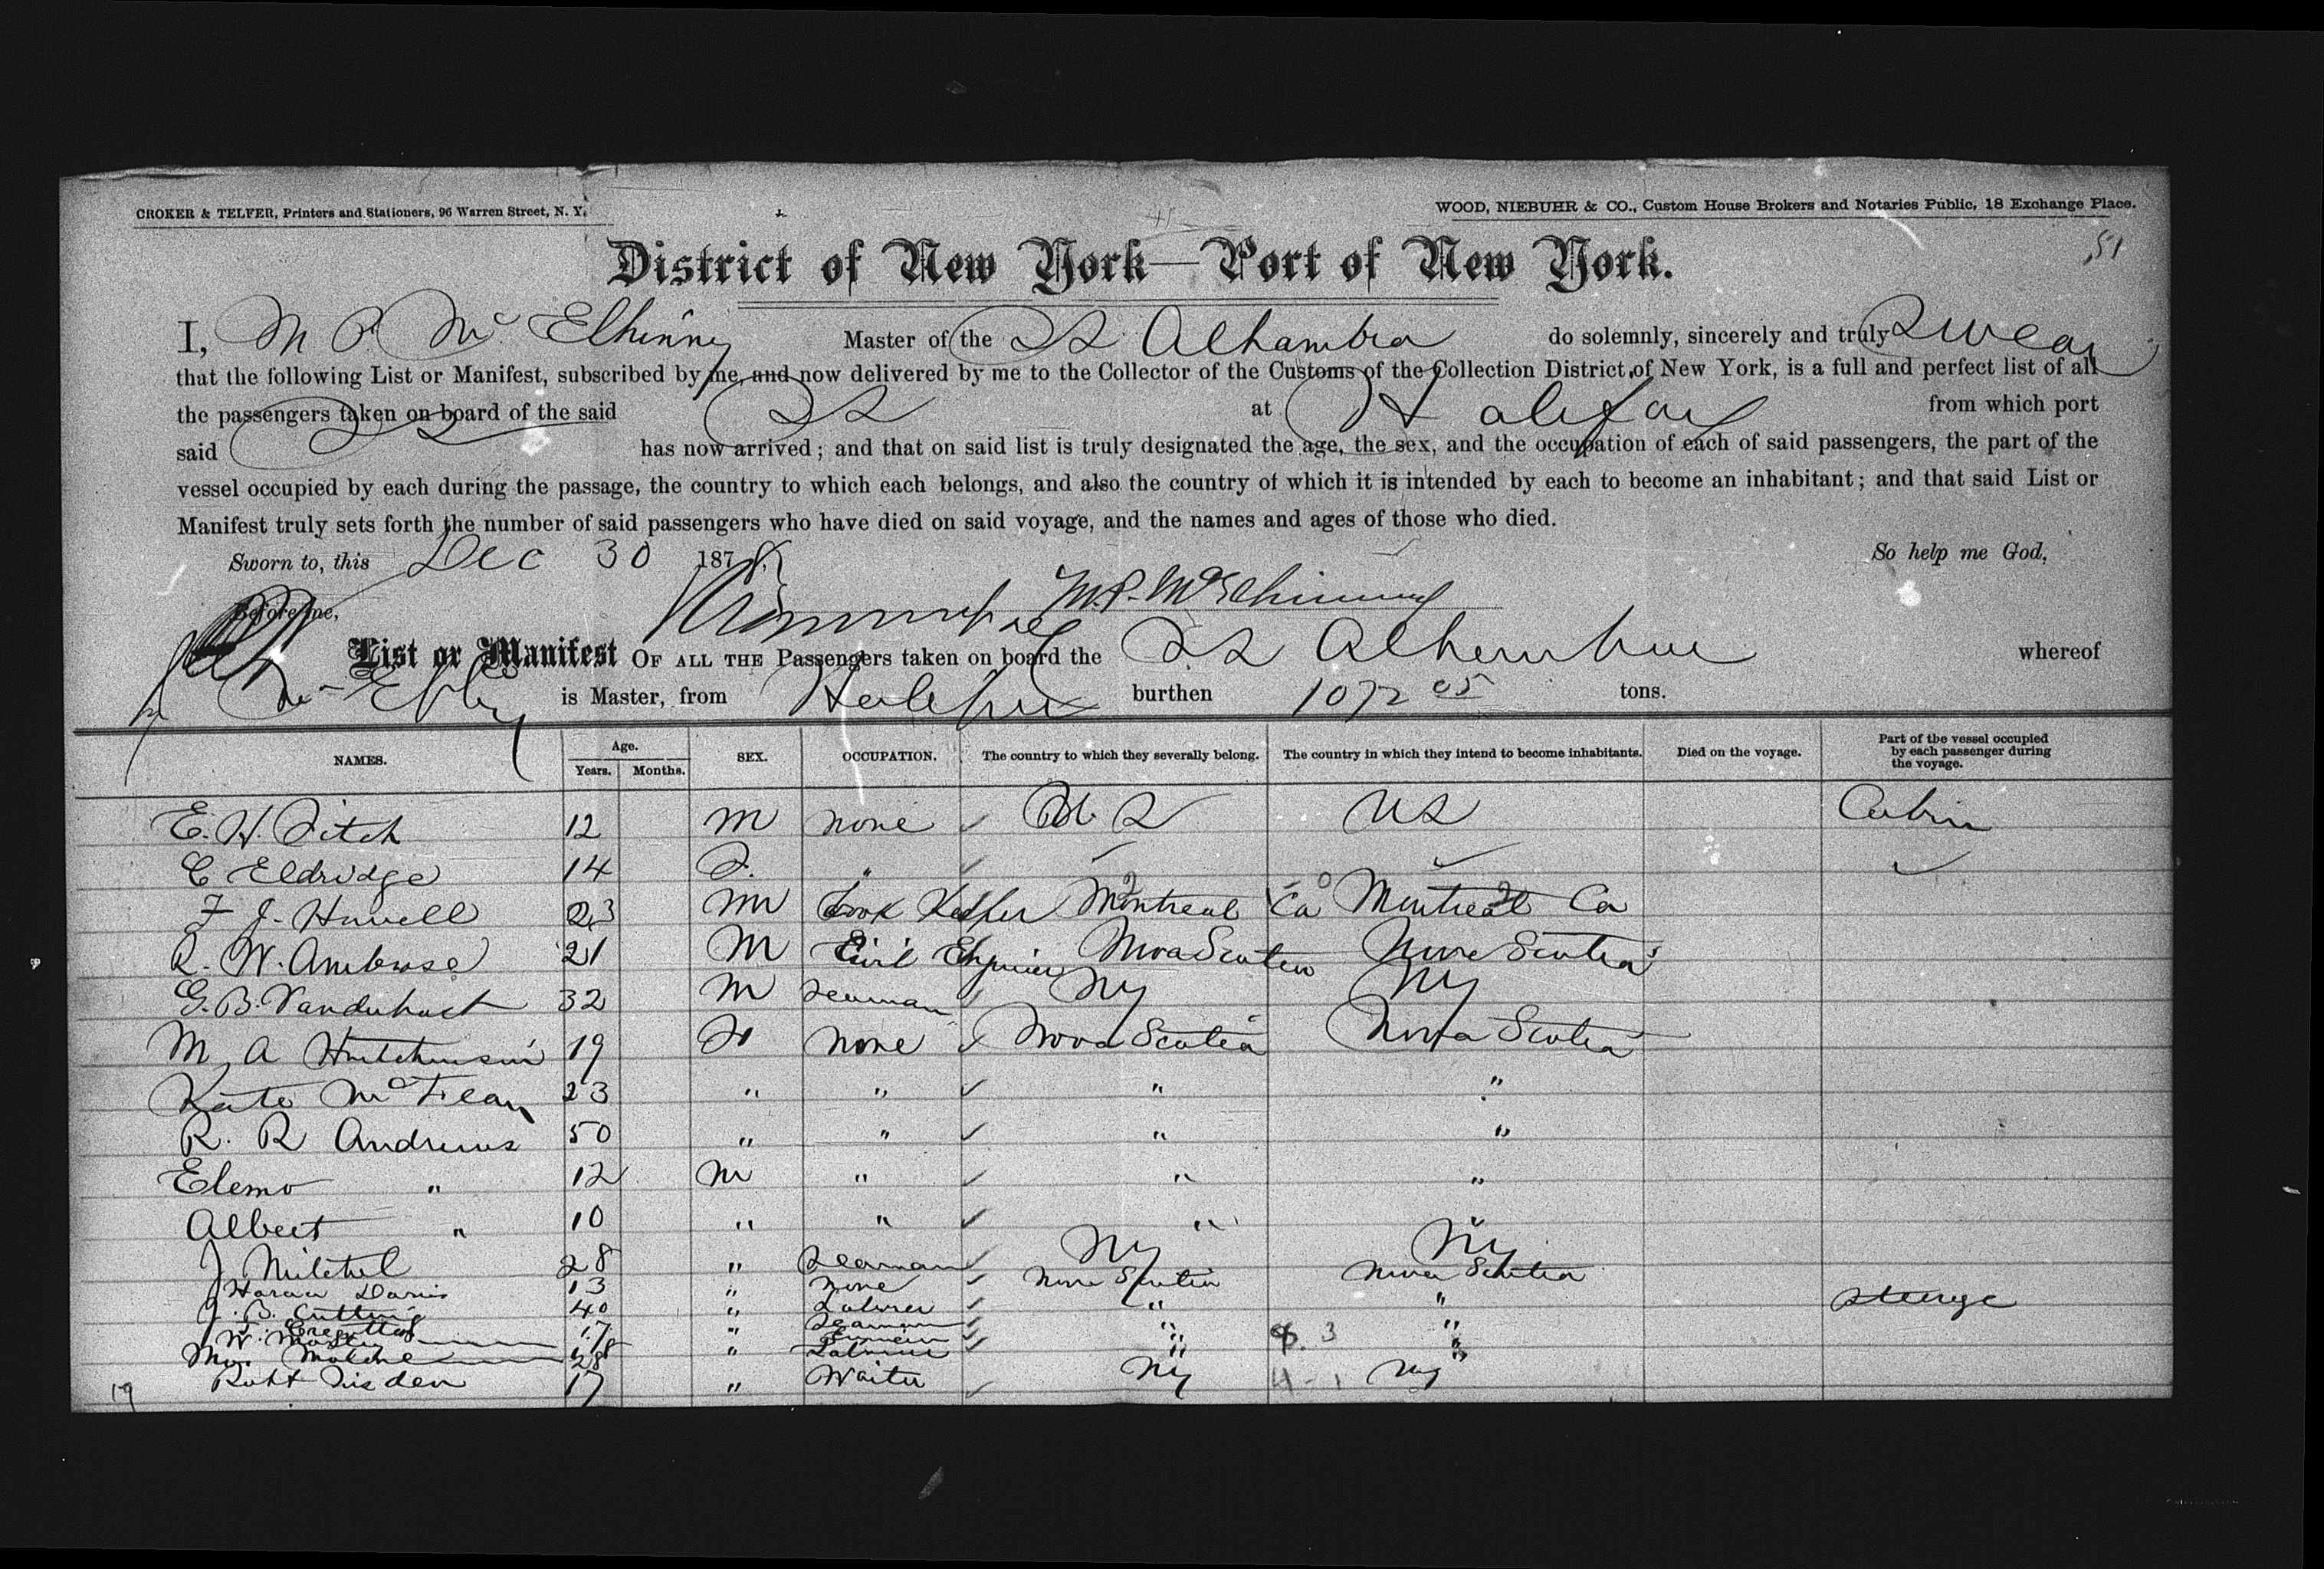 CROKER & TELFER, Printers and Stationers, 96 Warren Street, N. Y.
WOOD, NIEBUHR & CO., Custom House Brokers and Notaries Public, 18 Exchange Place.
51
District of New York—Port of New York.
I, M P Mc Elhinny Master of the SS Alhambra do solemnly, sincerely and truly Swear
that the following List or Manifest, subscribed by me, and now delivered by me to the Collector of the Customs of the Collection District of New York, is a full and perfect list of all
the passengers taken on board of the said SS at Halifax from which port
said SS has now arrived; and that on said list is truly designated the age, the sex, and the occupation of each of said passengers, the part of the
vessel occupied by each during the passage, the country to which each belongs, and also the country of which it is intended by each to become an inhabitant; and that said List or
Manifest truly sets forth the number of said passengers who have died on said voyage, and the names and ages of those who died.
Sworn to, this Dec 30 1878 So help me God,
Before me, M.P. McElhinney
List or Manifest OF ALL THE Passengers taken on board the SS Alhambra whereof
is Master, from Halifax burthen 1072 05 tons.
NAMES. Age. Years. Months. SEX. OCCUPATION. The country to which they severally belong. The country in which they intend to become inhabitants. Died on the voyage. Part of the vessel occupied by each passenger during the voyage.
E. H. Fitch 12 M none U S U S Cabin
E Eldridge 14 F. "
F J. Howell 23 M Book Keeper Montreal Ca Montreal Ca
R. W. Ambrose 21 M Civil Engineer Nova Scotia Nova Scotia
G. B. Vanderhoct 32 M Seaman NY NY
M A Hutchinson 19 F none Nova Scotia Nova Scotia
Kate Mc 23 " " " "
R. R Andrews 50 " " " "
" 12 M " " "
Albert " 10 " " " "
J Mitchel 28 " Seaman NY NY
Horace Davis 13 " none Nova Scotia Nova Scotia
J. B. Cutting 40 " Laborer " " Steerage
17 " Seaman " "
W. " "
28 " Laborer " "
Robt 17 " Waiter NY NY